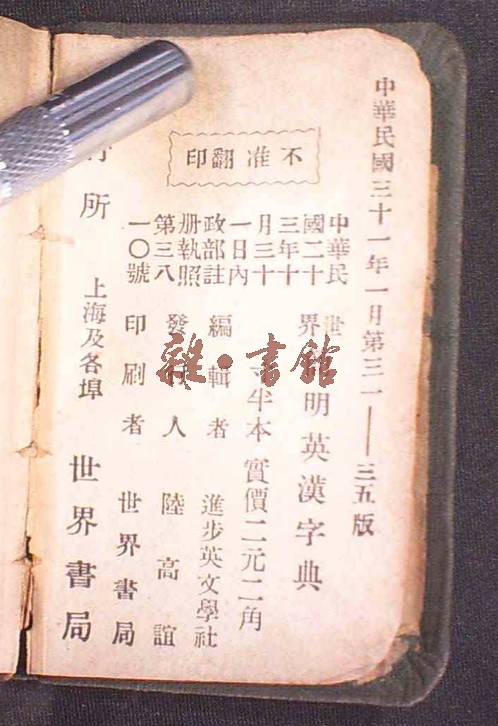 中華民國三十一年一月第三一——三五版
不准翻印
中華民
國二十
三年十
月三十
一日內
政部註
册執照
第三八
一〇號
世界 明英漢字典
半本 實價二元二角
編輯者 進步英文學社
發行人 陸高誼
印刷者 世界書局
所 上海及各埠 世界書局
雜·書館